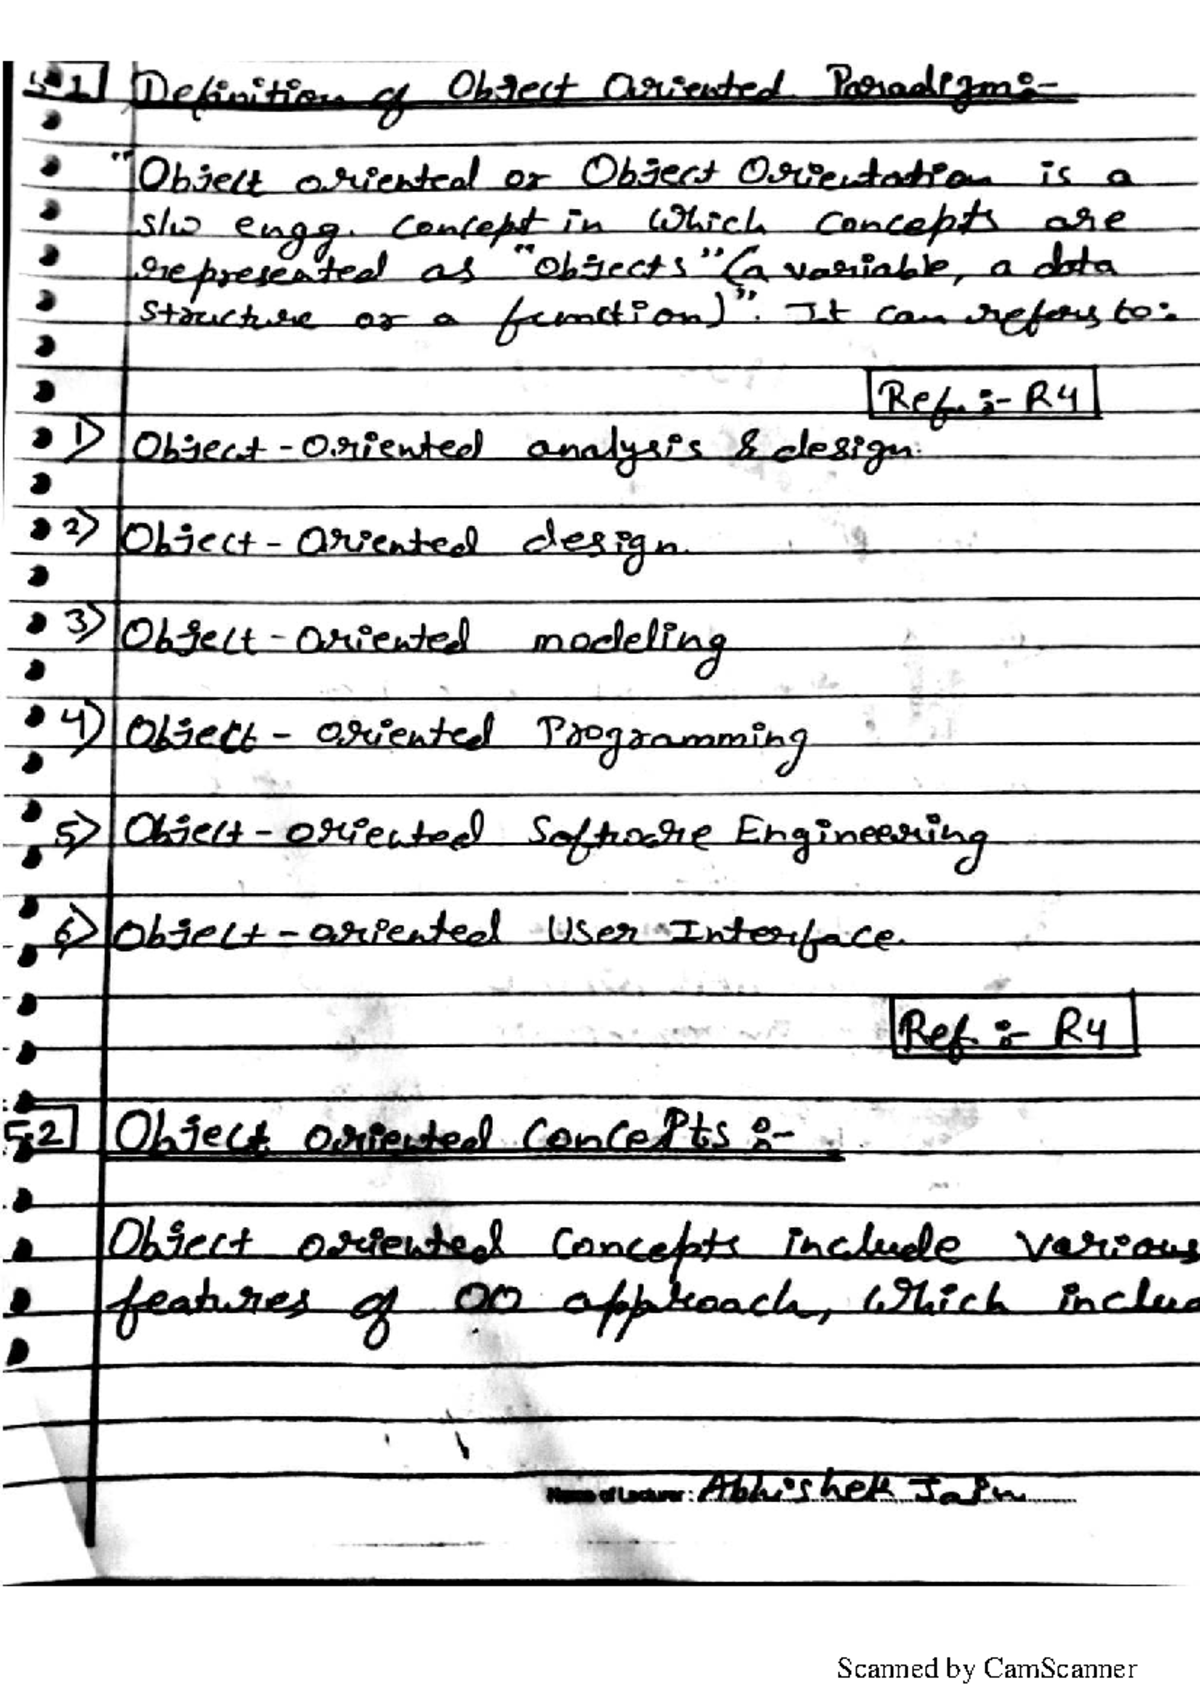 5.1 Definition of Object Oriented Paradigm:-
"Object oriented or Object Orientation is a
s/w engg. concept in which concepts are
represented as "objects" (a variable, a data
structure or a function)". It can refers to:
Ref. :- R4
1) Object-oriented analysis & design.
2) Object-oriented design.
3) Object-oriented modeling
4) Object-oriented Programming
5) Object-oriented Software Engineering
6) Object-oriented User Interface.
Ref. :- R4
5.2 Object oriented concepts :-
Object oriented concepts include various
features of OO approach, which includ
Name of Lecturer : Abhishek Jain
Scanned by CamScanner